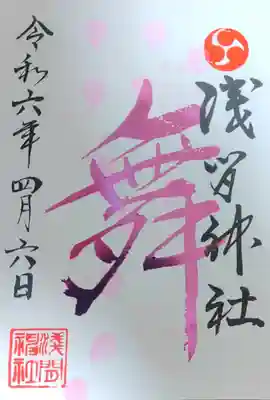 浅间神社
舞
令和六年四月六日
浅間
神社